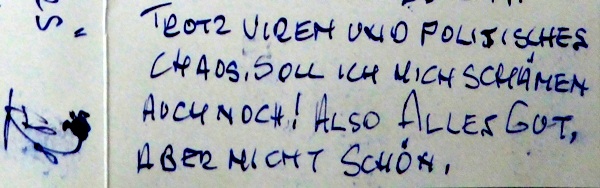 TROTZ VIREN UND POLITISCHES
CHAOS, SOLL ICH MICH SCHÄMEN
AUCH NOCH! ALSO ALLES GUT,
ABER NICHT SCHÖN.